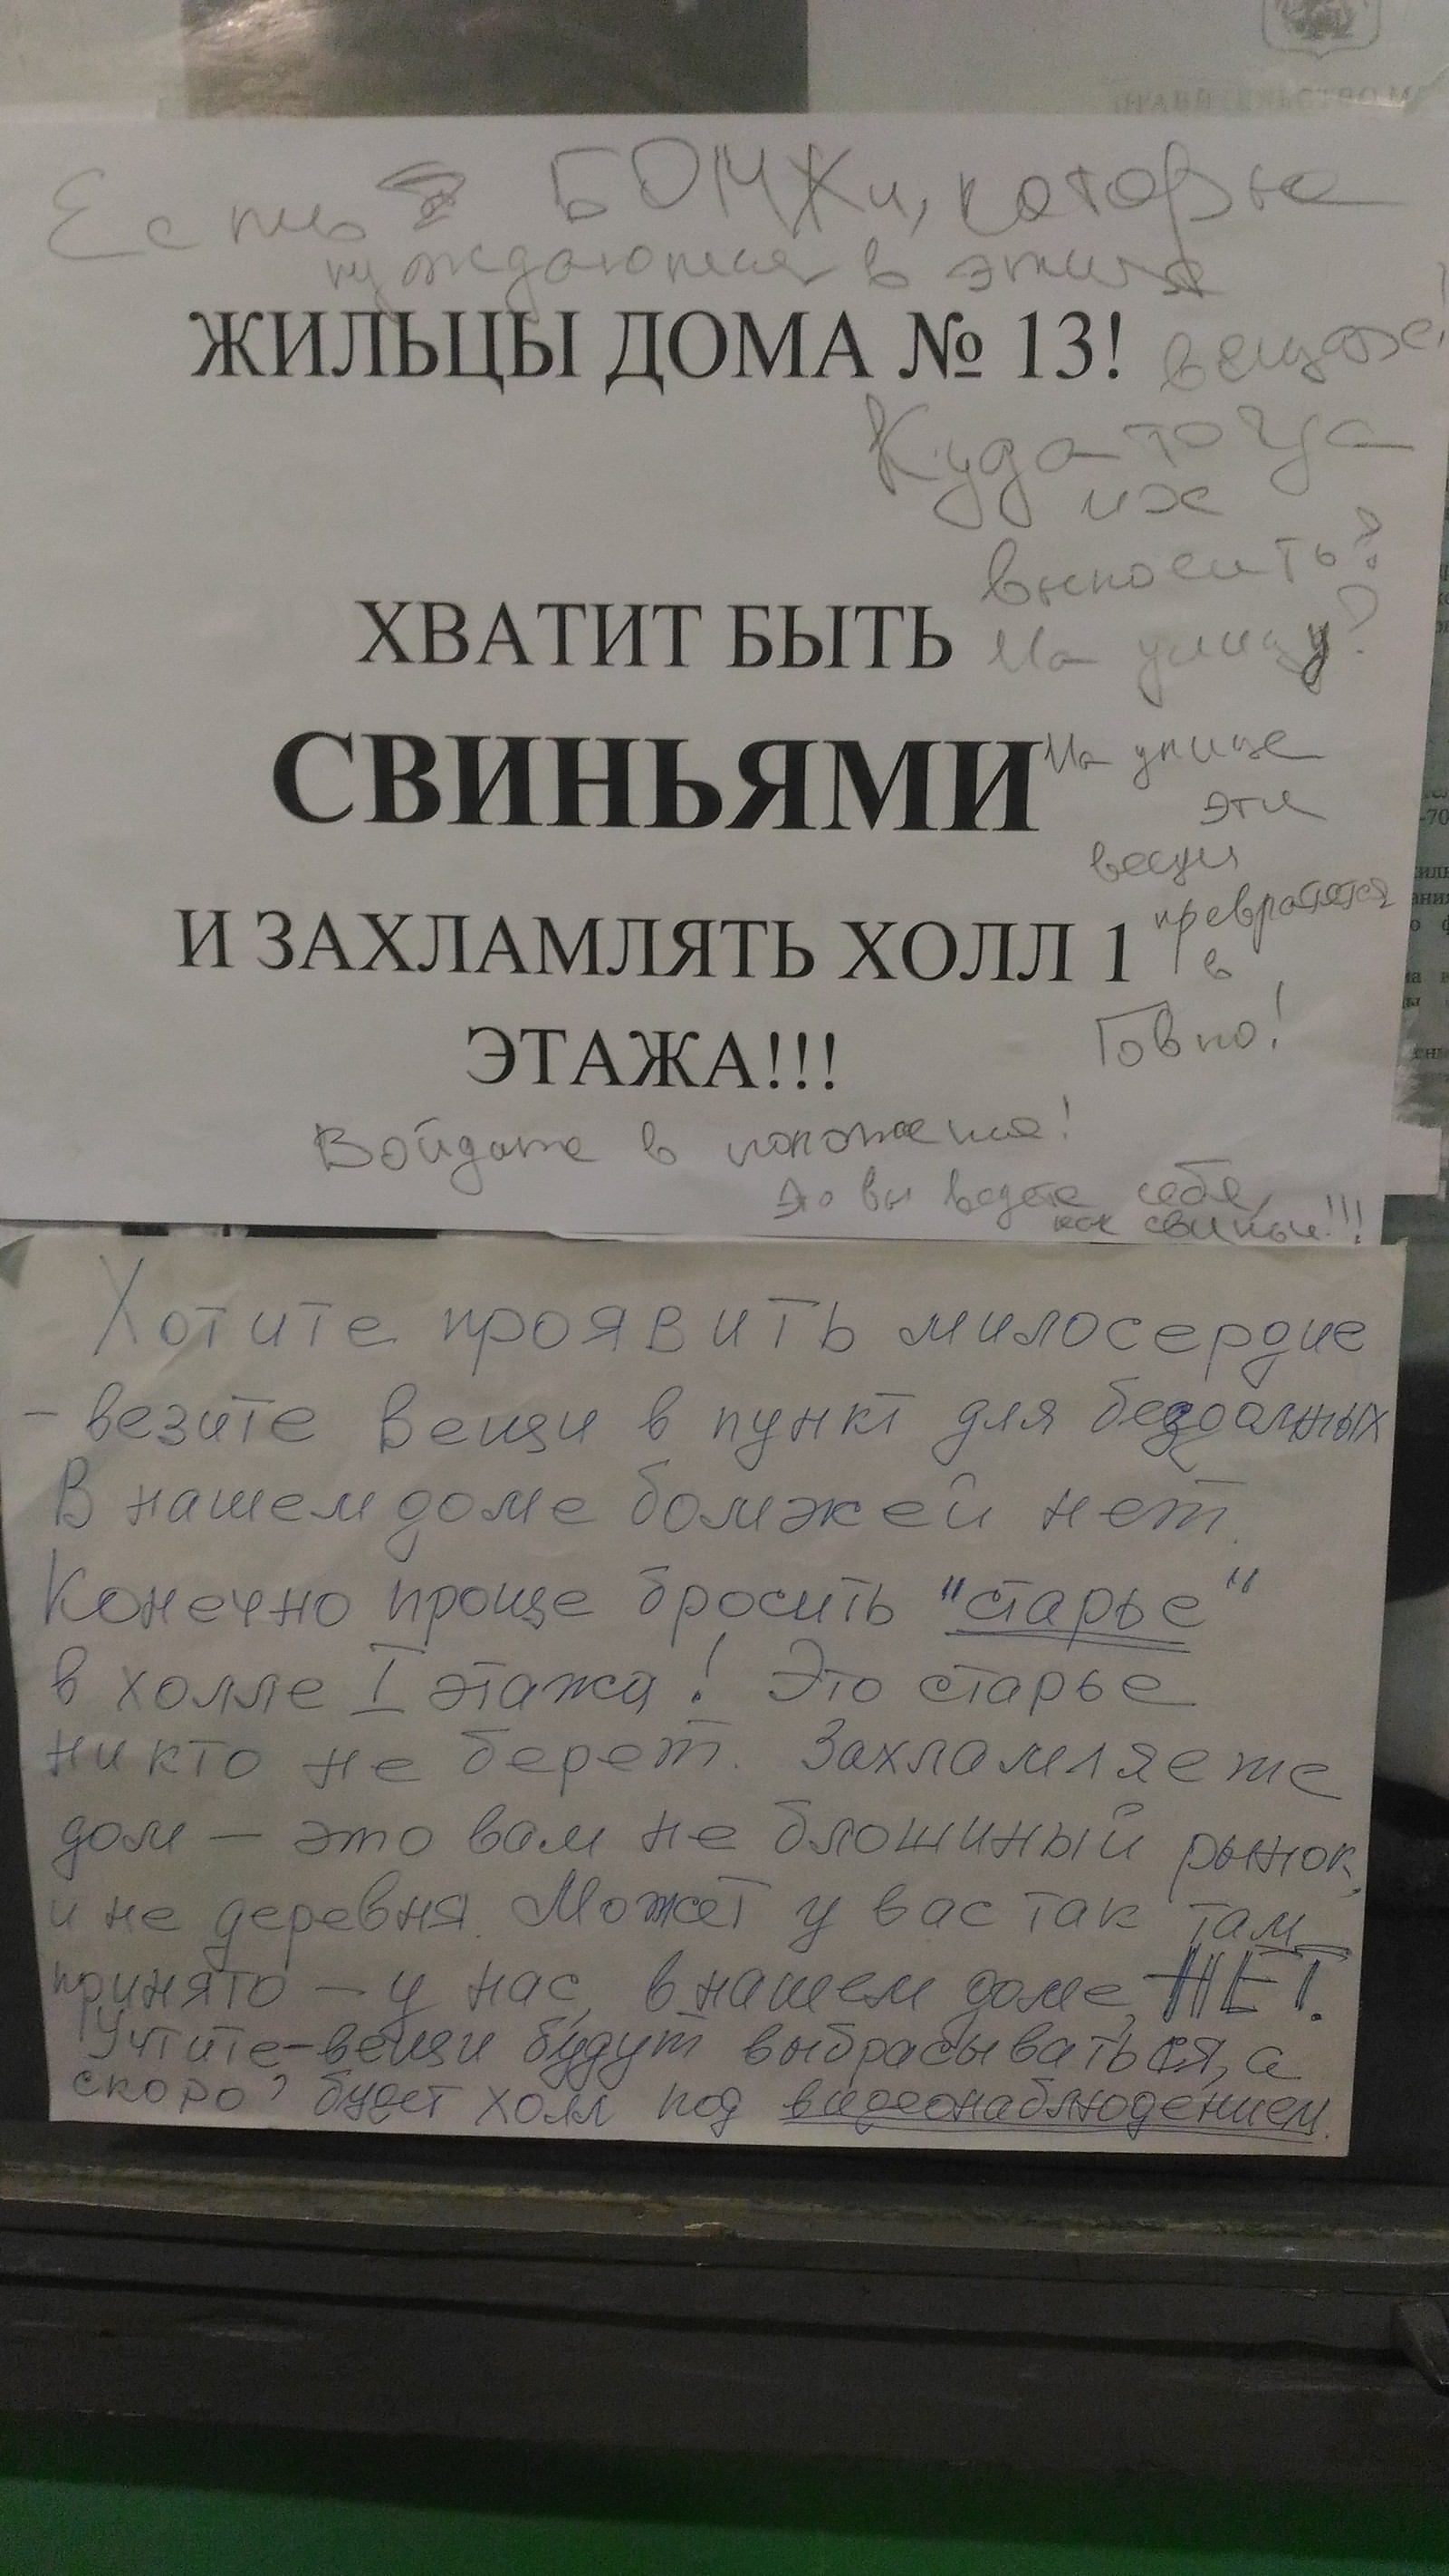 Есть БОМЖи, которые
нуждаются в этих
ЖИЛЬЦЫ ДОМА № 13!
вещах!
Куда тогда
их
выносить?
На улицу?
ХВАТИТ БЫТЬ
СВИНЬЯМИ
На улице
эти
вещи
превратятся
в
Говно!
И ЗАХЛАМЛЯТЬ ХОЛЛ 1
ЭТАЖА!!!
Войдите в положение!
Это вы ведёте себя,
как свиньи!!!
Хотите проявить милосердие
- везите вещи в пункт для бездомных
В нашем доме бомжей нет.
Конечно проще бросить "старье"
в холле I этажа! Это старье
никто не берет. Захламляете
дом — это вам не блошиный рынок,
и не деревня. Может у вас так там
принято — у нас, в нашем доме, НЕТ.
Учтите - вещи будут выбрасываться, а
скоро, будет холл под видеонаблюдением.